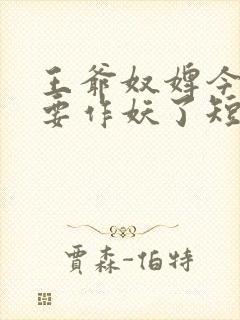 王爷奴婢今
要作妖了短
賈森-伯特